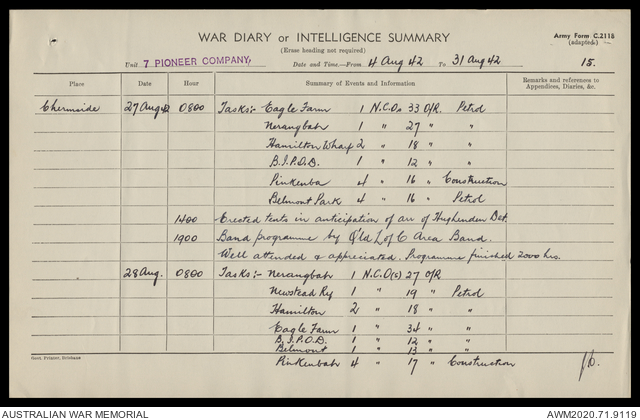 WAR DIARY or INTELLIGENCE SUMMARY
Army Form C.2118
(Erase heading not required)
(adapted)
Unit 7 PIONEER COMPANY
Date and Time.—From 4 Aug 42 To 31 Aug 42
15.
Place Date Hour Summary of Events and Information Remarks and references to Appendices, Diaries, &c.
Chermside 27 Aug 42 0800 Tasks:- Eagle Farm 1 N.C.O. 33 O/R. Petrol
Nerangbah 1 " 27 " "
Hamilton Wharf 2 " 18 " "
B.I.P.O.D. 1 " 12 " "
Pinkenba 4 " 16 " Construction
Belmont Park 4 " 16 " Petrol
1400 Erected tents in anticipation of arr of Hughenden Det.
1900 Band programme by Q'ld L of C Area Band.
Well attended & appreciated. Programme finished 2000 hrs.
28 Aug. 0800 Tasks:- Nerangbah 1 N.C.O(s) 27 O/R
Newstead Ry 1 " 19 " Petrol
Hamilton 2 " 18 " "
Eagle Farm 1 " 34 " "
B.I.P.O.D. 1 " 12 " "
Belmont 1 " 13 " "
Pinkenbah 4 " 17 " Construction
Govt. Printer, Brisbane
AUSTRALIAN WAR MEMORIAL
AWM2020.71.9119